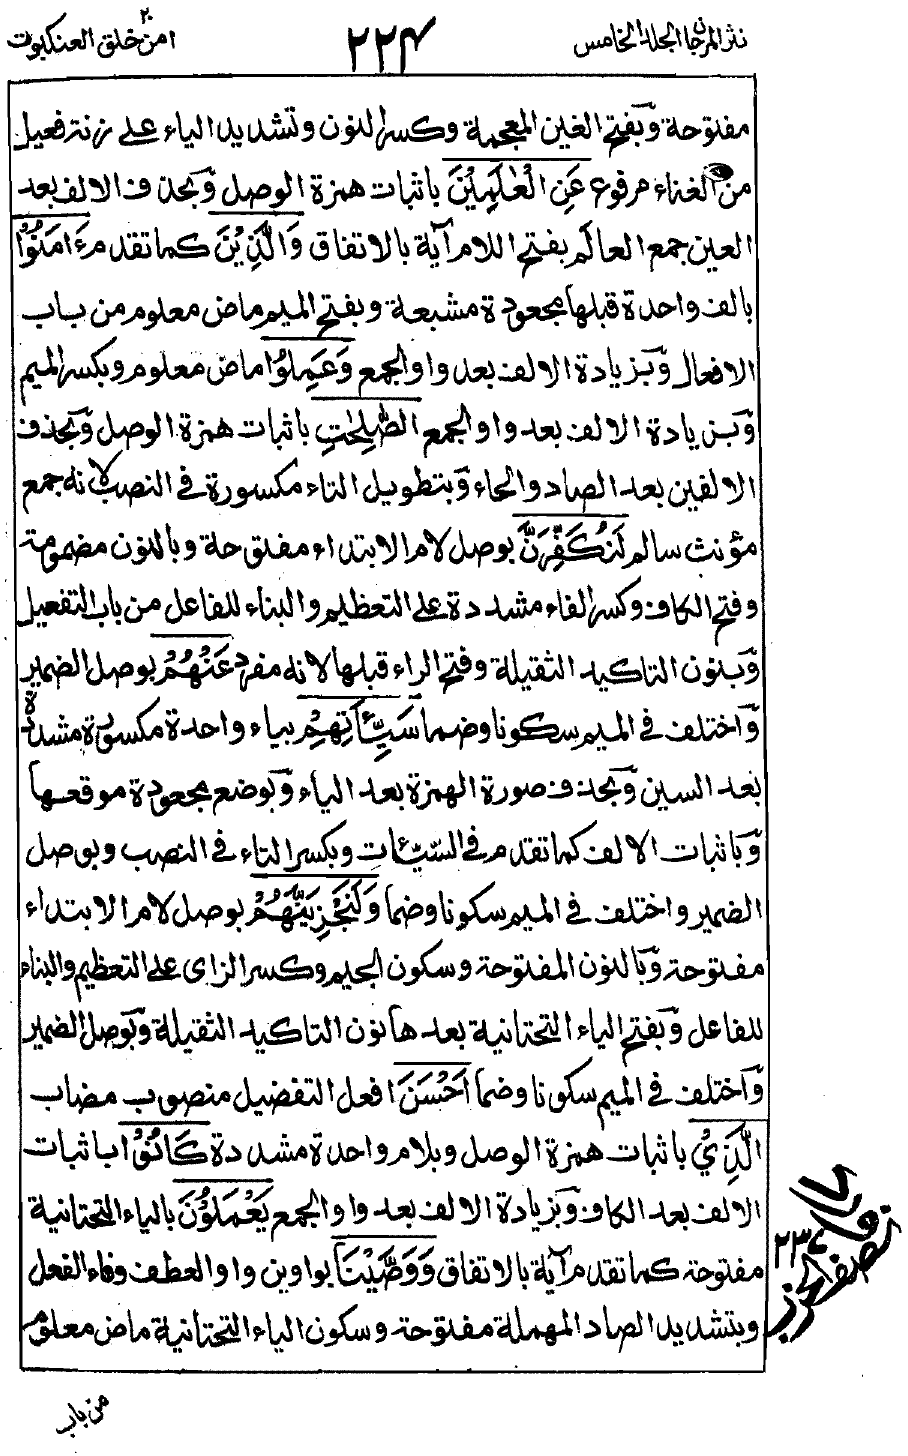 نثر المرجان الجلد الخامس
٢٢٤
امن خلق ٢٠ العنكبوت
مفتوحة وبفتح الغين المعجمة وكسر النون وتشديد الياء على زنة فعيل
من الغناء مرفوع عَنِ الْعٰلَمِيْنَ باثبات همزة الوصل وبحذف الالف بعد
العين جمع العالم بفتح اللام آية بالاتفاق وَالَّذِيْنَ كما تقدم ءَامَنُوْا
بالف واحدة قبلها مجعودة مشبعة وبفتح الميم ماض معلوم من باب
الافعال وبزيادة الالف بعد واو الجمع وَعَمِلُوا ماض معلوم وبكسر الميم
وبزيادة الالف بعد واو الجمع الصّٰلِحٰتِ باثبات همزة الوصل وبحذف
الالفين بعد الصاد والحاء وبتطويل التاء مكسورة في النصب لانه جمع
مؤنث سالم لَنُكَفِّرَنَّ بوصل لام الابتداء مفتوحة وبالنون مضمومة
وفتح الكاف وكسر الفاء مشددة على التعظيم والبناء للفاعل من باب التفعيل
وبنون التاكيد الثقيلة وفتح الراء قبلها لانه مفرد عَنْهُمْ بوصل الضمير
واختلف في الميم سكونا وضما سَيِّـَٔاتِهِمْ بياء واحدة مكسورة مشددة
بعد السين وبحذف صورة الهمزة بعد الياء وبوضع مجعودة موقعها
وباثبات الالف كما تقدم في السّيّـٔات وبكسر التاء في النصب وبوصل
الضمير واختلف في الميم سكونا وضما وَلَنَجْزِيَنَّهُمْ بوصل لام الابتداء
مفتوحة وبالنون المفتوحة وسكون الجيم وكسر الزاى على التعظيم والبناء
للفاعل وبفتح الياء التحتانية بعدها نون التاكيد الثقيلة وبوصل الضمير
واختلف في الميم سكونا وضما اَحْسَنَ افعل التفضيل منصوب مضاب
الَّذِيْ باثبات همزة الوصل وبلام واحدة مشددة كَانُوْا باثبات
الالف بعد الكاف وبزيادة الالف بعد واو الجمع يَعْمَلُوْنَ بالياء التحتانية
مفتوحة كما تقدم آية بالاتفاق وَوَصَّيْنَا بواوين واو العطف وفاء الفعل
وبتشديد الصاد المهملة مفتوحة وسكون الياء التحتانية ماض معلوم
نصف الحزب
٢٣٤
من باب